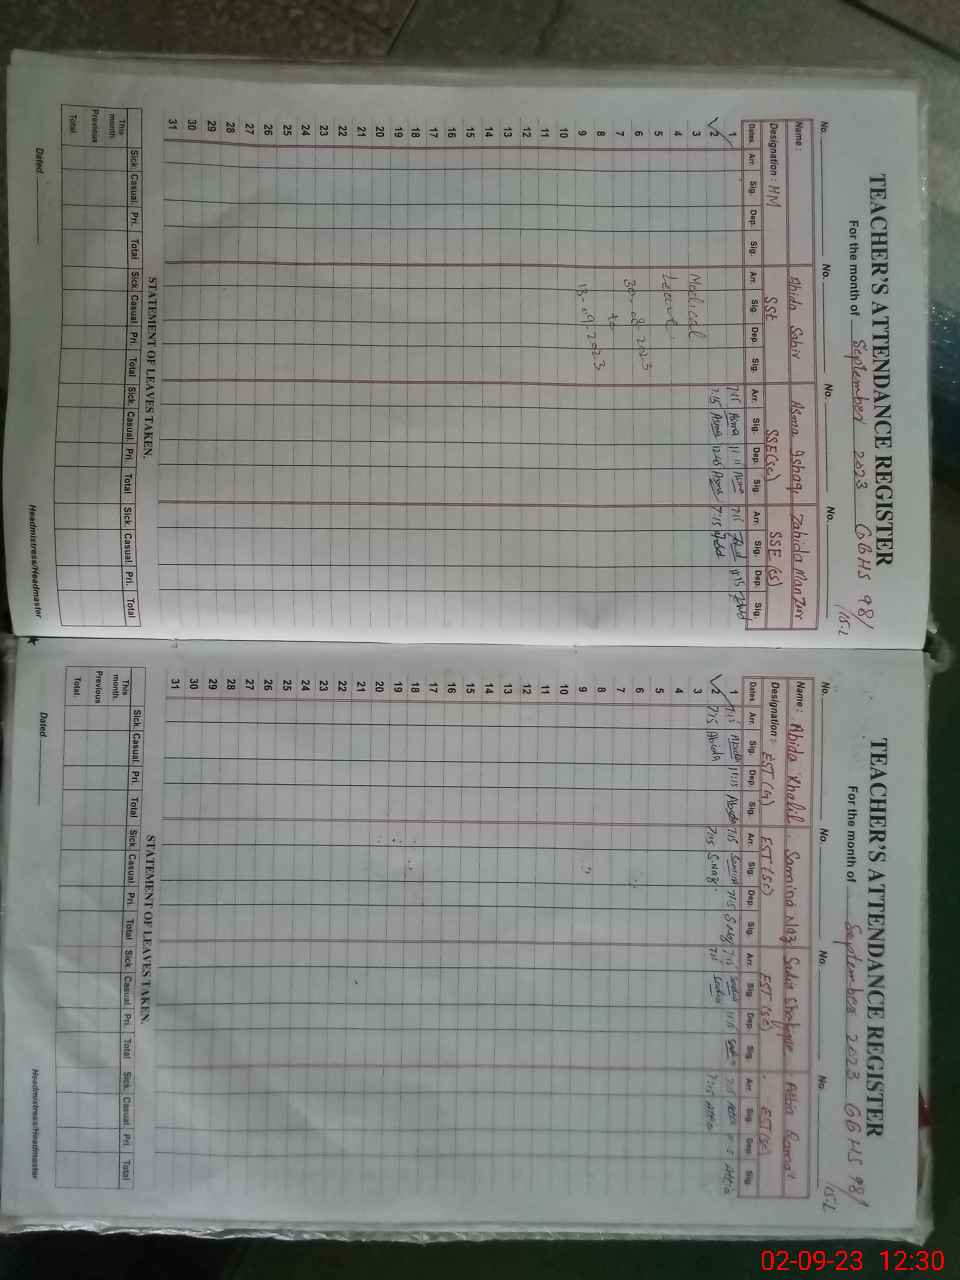 TEACHER'S ATTENDANCE REGISTER
For the month of September 2023 GGHS 98/15-L
No. No. No. No.
Name: Abida Sabir Asma Ishaq Zahida Manzur
Designation: HM SSt SSE(Sc) SSE (CS)
Dates Arr. Sig. Dep. Sig. Arr. Sig. Dep Sig. Arr. Sig. Dep. Sig. Arr. Sig. Dep. Sig.
1 7:15 Asma 11:15 Asma 7:15 11:15
2 7:15 Asma 12:45 Asma 7:15
3 Medical
4
5 Leave
6 30-08-2023
7 to
8
9 13-09-2023
10
11
12
13
14
15
16
17
18
19
20
21
22
23
24
25
26
27
28
29
30
31
STATEMENT OF LEAVES TAKEN.
Sick. Casual. Pri. Total Sick. Casual. Pri. Total Sick. Casual. Pri. Total Sick. Casual. Pri. Total
This month
Previous
Total.
Dated
Headmistress/Headmaster
TEACHER'S ATTENDANCE REGISTER
For the month of September 2023 GGHS 98/15-L
No. No. No. No.
Name: Abida Khalil Samina Naz Sadia Shafique Attia
Designation: EST (G) EST (SC) EST (SC) EST (SC)
Dates Arr. Sig. Dep. Sig. Arr. Sig. Dep. Sig. Arr. Sig. Dep. Sig. Arr. Sig. Dep. Sig.
1 7:15 Abida 11:15 Abida 7:15 Samina S.Naz 7:15 Sadia 11:15 Sadia 7:15 Attia Attia
2 7:15 Abida 7:15 S.Naz 7:15 Sadia 7:15 Attia
3
4
5
6
7
8
9
10
11
12
13
14
15
16
17
18
19
20
21
22
23
24
25
26
27
28
29
30
31
STATEMENT OF LEAVES TAKEN.
Sick. Casual. Pri. Total Sick. Casual. Pri. Total Sick. Casual. Pri. Total Sick. Casual. Pri. Total
This month.
Previous
Total.
Dated
Headmistress/Headmaster
02-09-23 12:30